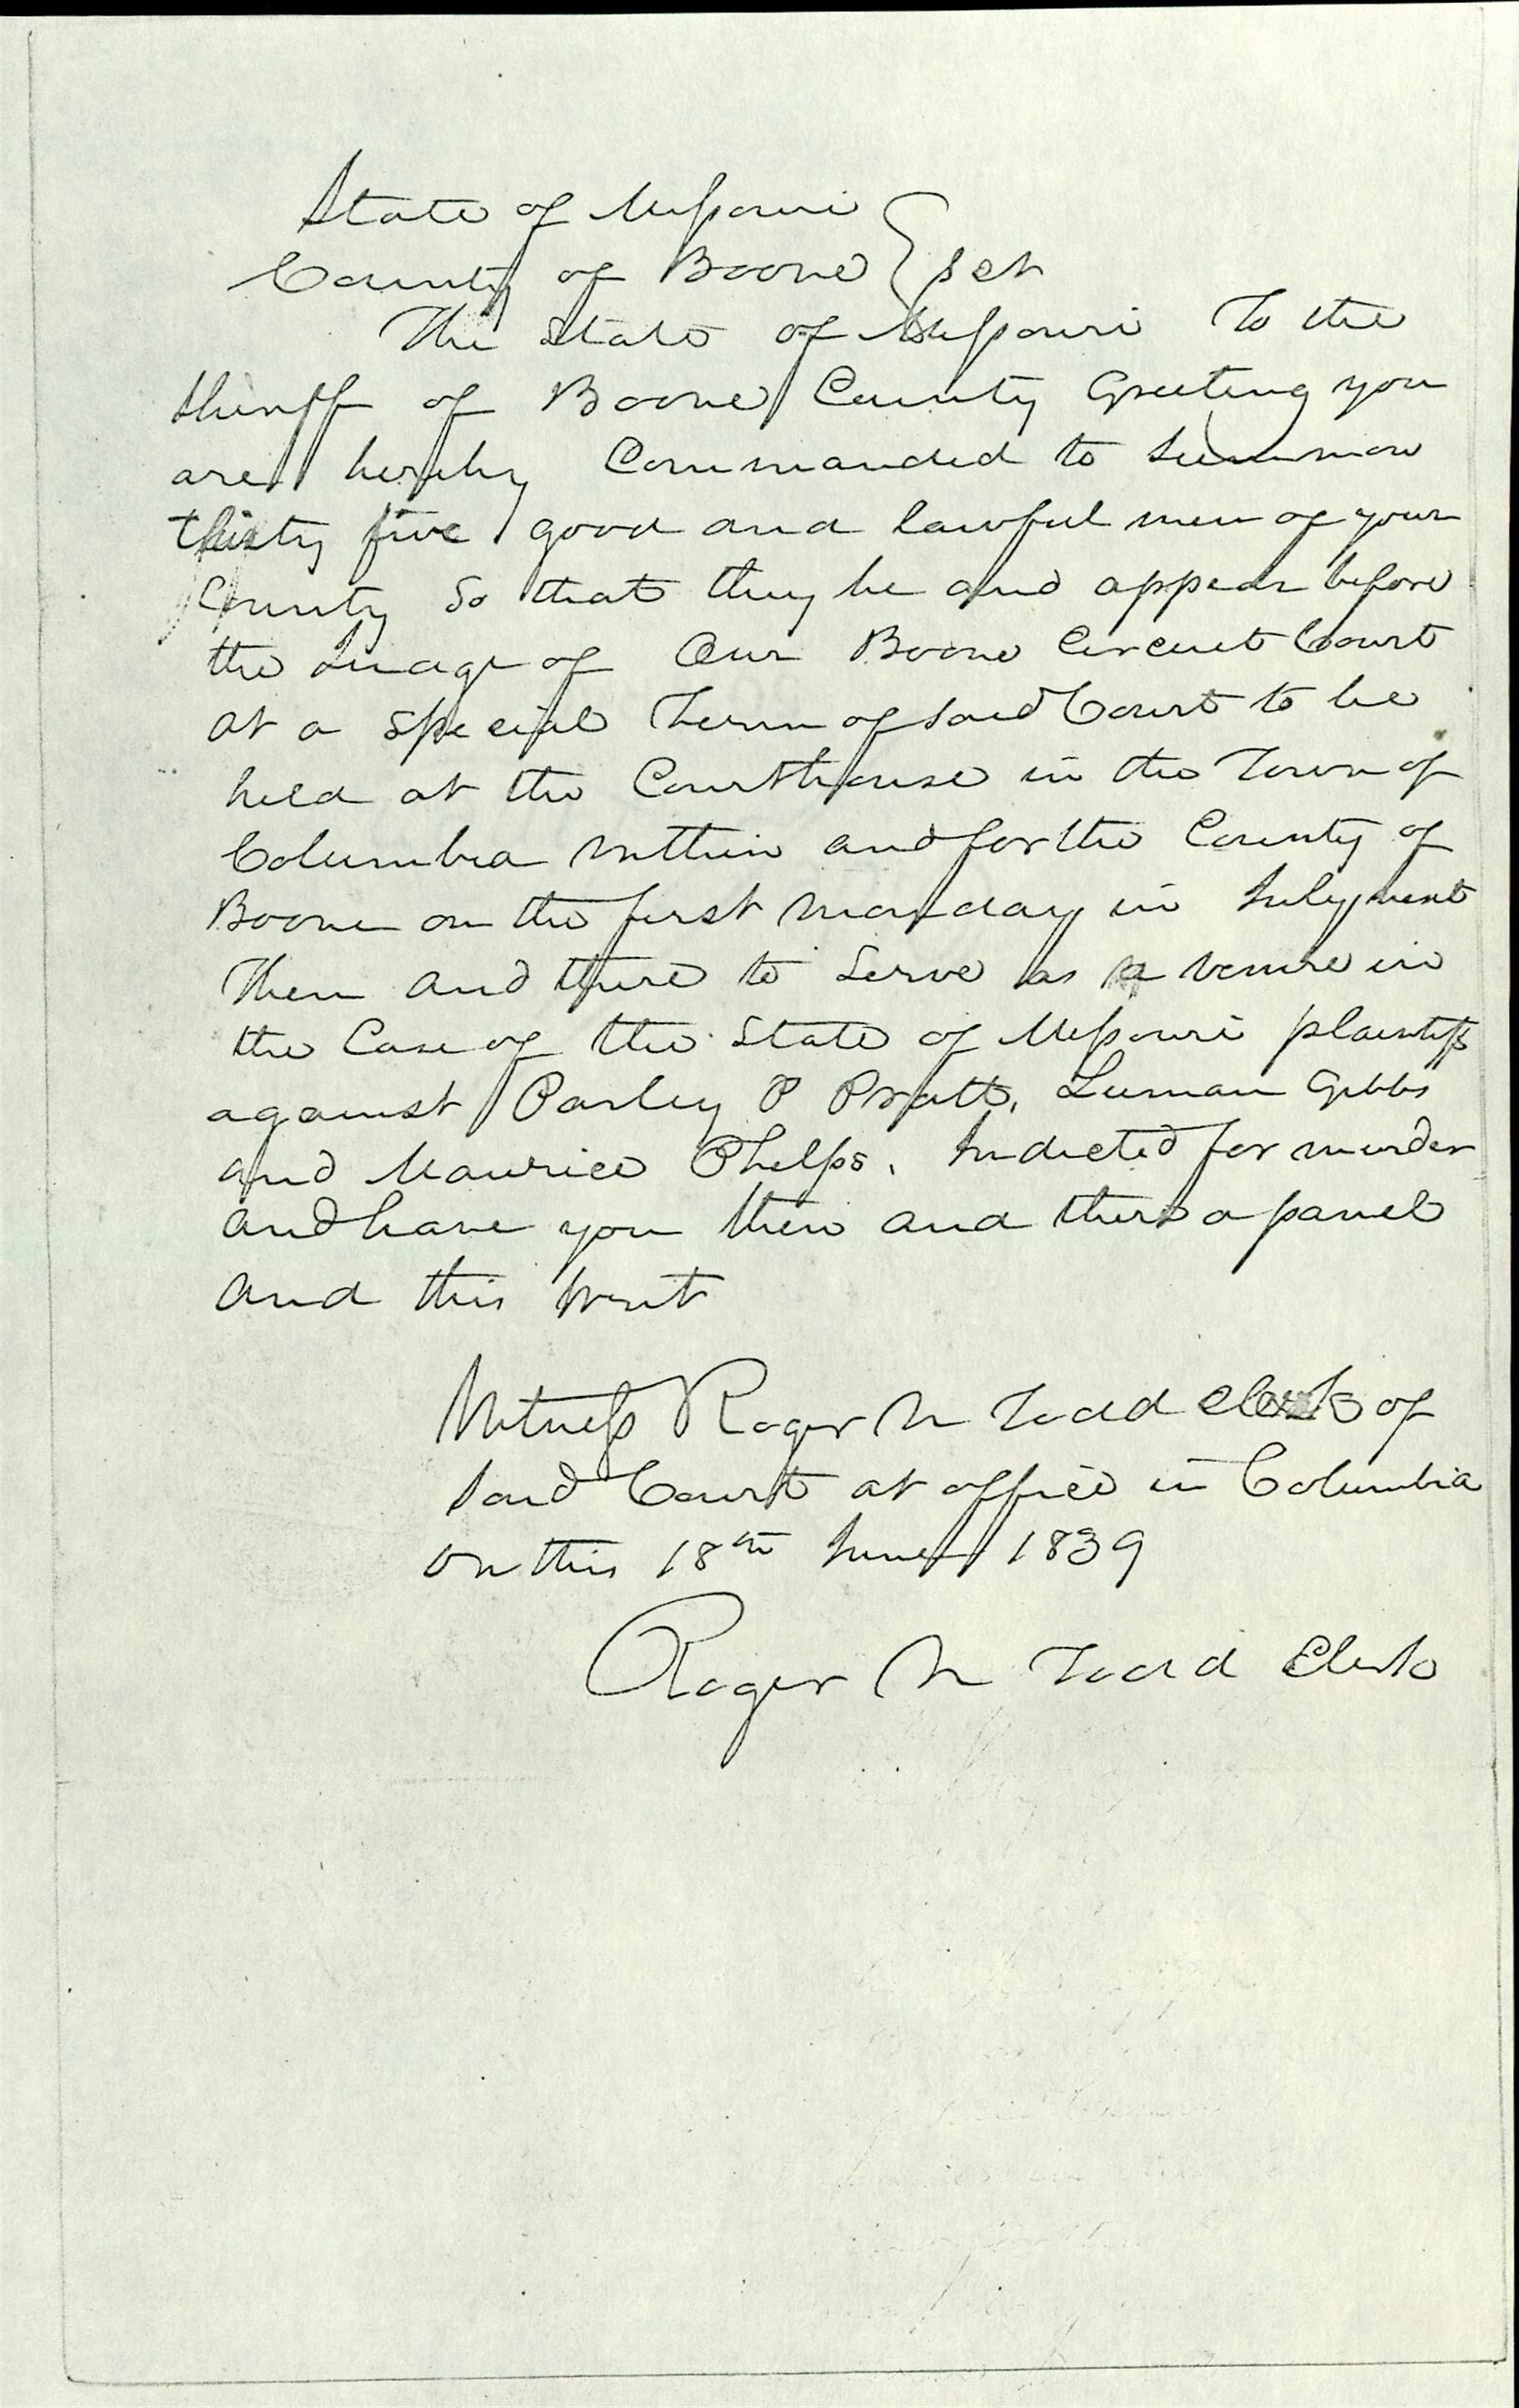 State of Missouri
County of Boone } sct
The State of Missouri To the
Sheriff of Boone County Greeting you
are hereby Commanded to Summon
thirty five good and lawful men of your
County So that they be and appear before
the Judge of Our Boone Circuit Court
at a Special Term of said Court to be
held at the Courthouse in the Town of
Columbia within and for the County of
Boone on the first Monday in July next
Then and there to Serve as a venire in
the Case of the State of Missouri plaintiff
against Parley P Pratt, Luman Gibbs
and Maurice Phelps. Indicted for murder
and have you then and there a panel
and this writ
Witness Roger N Todd clerk of
said Court at office in Columbia
on this 18th June 1839
Roger N Todd Clerk